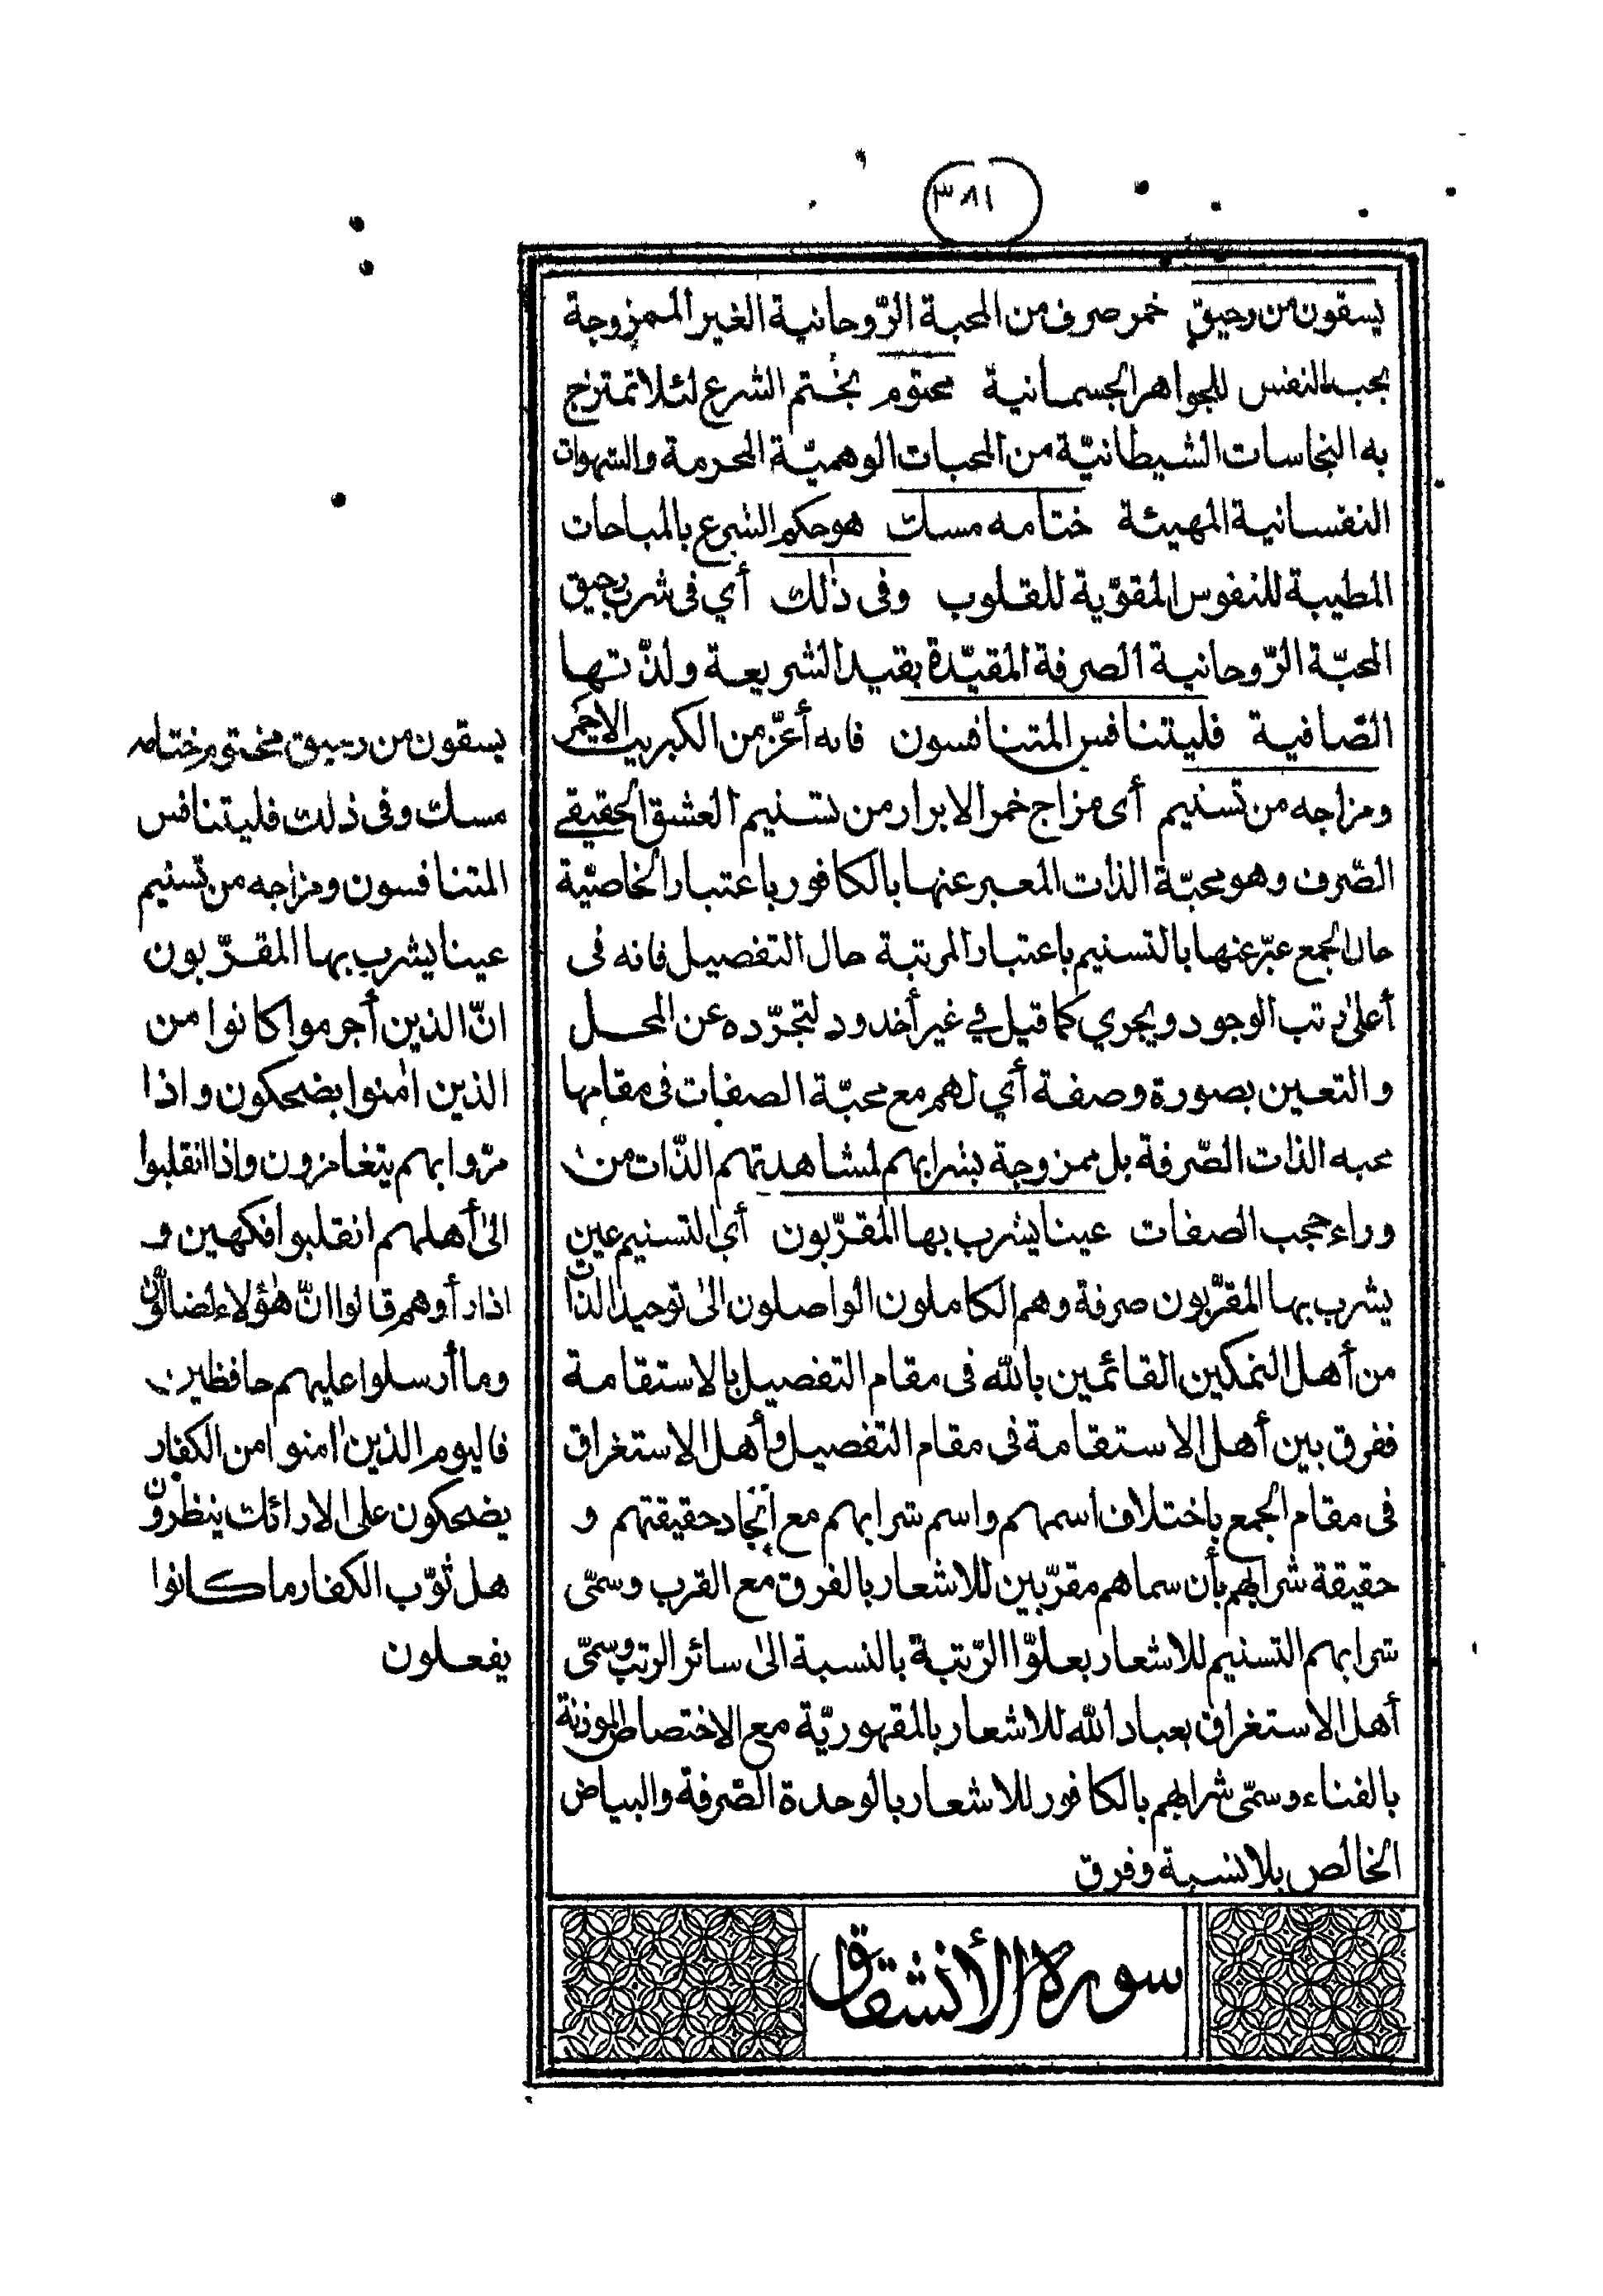 ٣٨١
يسقون من رحيق خمر صرف من المحبة الرّوحانية الغير الممزوجة
بحب النفس للجواهر الجسمانية مختوم بختم الشرع لئلا تمتزج
به النجاسات الشيطانيّة من المحبات الوهميّة المحرمة والشهوات
النفسانية المهيئة ختامه مسك هو حكم الشرع بالمباحات
المطيبة للنفوس المقوّية للقلوب وفى ذلك أي فى شرب رحيق
المحبّة الرّوحانية الصرفة المقيّدة بقيد الشريعة ولذّتها
الصّافية فليتنافس المتنافسون فانه أعزّ من الكبريت الاحمر
ومزاجه من تسنيم أى مزاج خمر الابرار من تسنيم العشق الحقيقي
الصّرف وهو محبّة الذات المعبر عنها بالكافور باعتبار الخاصّية
حال الجمع عبّر عنها بالتسنيم باعتبار المرتبة حال التفصيل فانه فى
أعلى رتب الوجود ويجري كما قيل في غير أخدود لتجرّده عن المحل
والتعين بصورة وصفة أي لهم مع محبّة الصفات فى مقامها
محبه الذات الصّرفة بل ممزوجة بشرابهم لمشاهدتهم الذّات من
وراء حجب الصفات عينا يشرب بها المقرّبون أي التسنيم عين
يشرب بها المقرّبون صرفة وهم الكاملون الواصلون الى توحيد الذات
من أهل التمكين القائمين بالله فى مقام التفصيل بالاستقامة
ففرق بين أهل الاستقامة فى مقام التفصيل وأهل الاستغراق
فى مقام الجمع باختلاف اسمهم واسم شرابهم مع اتّحاد حقيقتهم و
حقيقة شرابهم بأن سماهم مقرّبين للاشعار بالفرق مع القرب وسمّى
شرابهم التسنيم للاشعار بعلوّ الرّتبة بالنسبة الى سائر الرتب وسمّى
أهل الاستغراق بعباد الله للاشعار بالمقهوريّة مع الاختصاص الموذنة
بالفناء وسمّى شرابهم بالكافور للاشعار بالوحدة الصّرفة والبياض
الخالص بلا نسبة وفرق
سورة الأنشقاق
يسقون من رحيق مختوم ختامه
مسك وفى ذلك فليتنافس
المتنافسون ومزاجه من تسنيم
عينا يشرب بها المقرّبون
انّ الذين أجرموا كانوا من
الذين امنوا يضحكون واذا
مرّوا بهم يتغامزون واذا انقلبوا
الى أهلهم انقلبوا فكهين و
اذا رأوهم قالوا انّ هؤلاء لضالّون
وما أرسلوا عليهم حافظين
فاليوم الذين امنوا من الكفار
يضحكون على الارائك ينظرون
هل ثوّب الكفار ما كانوا
يفعلون